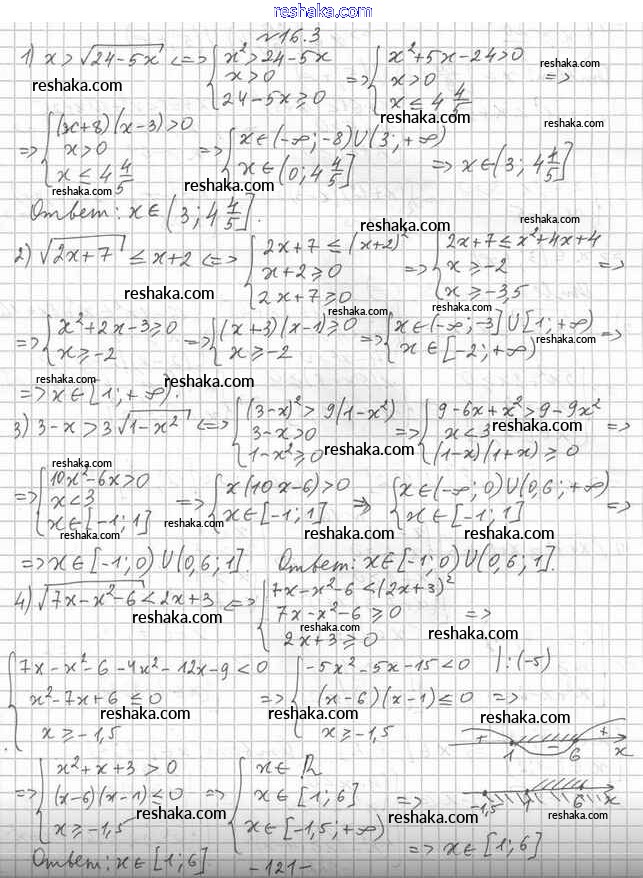 reshaka.com
№16.3
1) x > √(24-5x) <=> { x² > 24-5x; x > 0; 24-5x ≥ 0 => { x²+5x-24 > 0; x > 0; x ≤ 4 4/5 =>
=> { (x+8)(x-3) > 0; x > 0; x ≤ 4 4/5 => { x∈(-∞;-8)U(3;+∞); x∈(0; 4 4/5] => x∈(3; 4 4/5]
Ответ: x∈(3; 4 4/5].
2) √(2x+7) ≤ x+2 <=> { 2x+7 ≤ (x+2)²; x+2 ≥ 0; 2x+7 ≥ 0 => { 2x+7 ≤ x²+4x+4; x ≥ -2; x ≥ -3,5 =>
=> { x²+2x-3 ≥ 0; x ≥ -2 => { (x+3)(x-1) ≥ 0; x ≥ -2 => { x∈(-∞;-3]U[1;+∞); x∈[-2;+∞) =>
=> x∈[1;+∞).
3) 3-x > 3√(1-x²) <=> { (3-x)² > 9(1-x²); 3-x > 0; 1-x² ≥ 0 => { 9-6x+x² > 9-9x²; x < 3; (1-x)(1+x) ≥ 0 =>
=> { 10x²-6x > 0; x < 3; x∈[-1;1] => { x(10x-6) > 0; x∈[-1;1] => { x∈(-∞;0)U(0,6;+∞); x∈[-1;1] =>
=> x∈[-1;0)U(0,6;1]. Ответ: x∈[-1;0)U(0,6;1].
4) √(7x-x²-6) < 2x+3 <=> { 7x-x²-6 < (2x+3)²; 7x-x²-6 ≥ 0; 2x+3 ≥ 0 =>
{ 7x-x²-6-4x²-12x-9 < 0; x²-7x+6 ≤ 0; x ≥ -1,5 => { -5x²-5x-15 < 0 |:(-5); (x-6)(x-1) ≤ 0; x ≥ -1,5 =>
+ 1 - 6 + x
=> { x²+x+3 > 0; (x-6)(x-1) ≤ 0; x ≥ -1,5 => { x∈R; x∈[1;6]; x∈[-1,5;+∞) =>
-1,5 1 6 x
=> x∈[1;6]
Ответ: x∈[1;6]
-121-